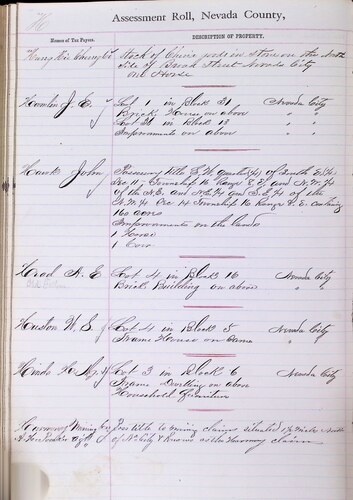 H
Assessment Roll, Nevada County,
Names of Tax Payers.
DESCRIPTION OF PROPERTY.
Stock of China goods in Store on the North
side of Broad Street Nevada City
one Horse
J. E. Lot 1 in Block 31 Nevada City
Brick House on above " "
Lot in Block " "
Improvements on above
Hawk John Possessory title S.W. quarter (1/4) of South E (1/4)
Sec 11, Township 16 Range 8 E and N.W. 1/4
of the N.E. and of the
N.W. 1/4 Sec 14 Township 16 Range 8 E. containing
160 acres
Improvements on the lands
1 Horse
1 Cow
Head A. E. Lot 4 in Block 16 Nevada City
Brick Building on above " "
Huston W. S. Lot 4 in Block 5 Nevada City
Frame House on same " "
Hinds Lot 3 in Block 6 Nevada City
Frame Dwelling on above
Household Furniture
Harmony Mining Co. Poss title to mining claims situated miles
of N. City & Known as the Harmony claim